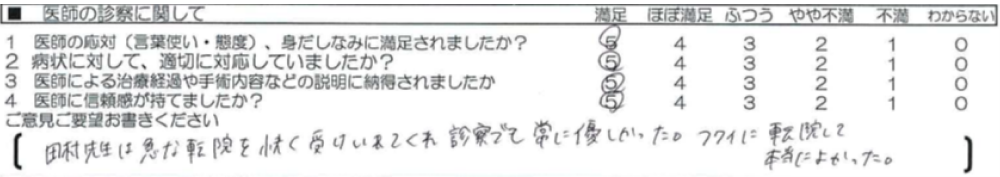 ■ 医師の診察に関して 満足 ほぼ満足 ふつう やや不満 不満 わからない
1 医師の応対（言葉使い・態度）、身だしなみに満足されましたか？ 5 4 3 2 1 0
2 病状に対して、適切に対応していましたか？ 5 4 3 2 1 0
3 医師による治療経過や手術内容などの説明に納得されましたか 5 4 3 2 1 0
4 医師に信頼感が持てましたか？ 5 4 3 2 1 0
ご意見ご要望お書きください
田村先生は急な転院を快く受けいれてくれ 診察でも常に優しかった。 に転院して
本当によかった。